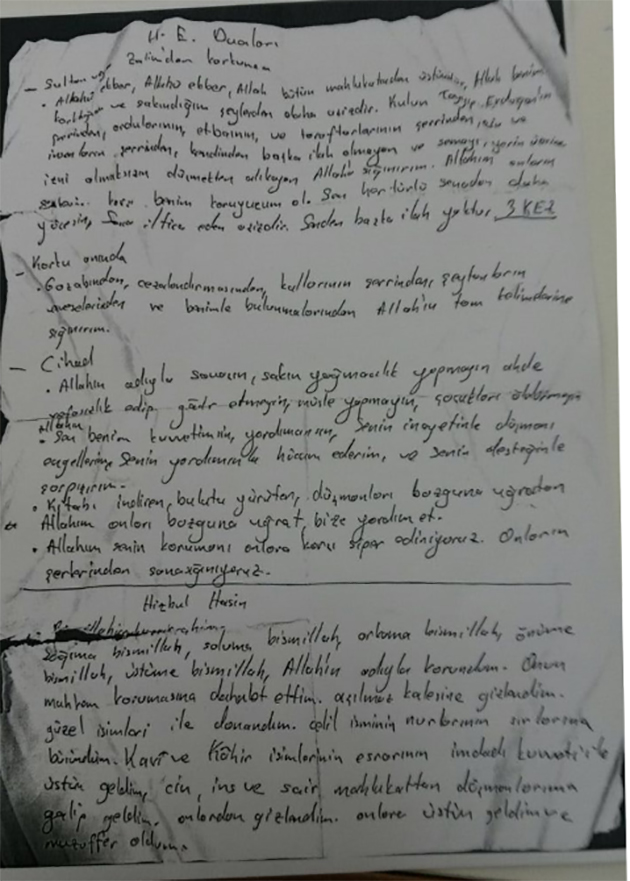 H. E. Duaları
Zalimden korkunca
- Sultan
• Allahü ekber, Allahü ekber, Allah bütün mahlukatından üstündür, Allah benim
korktuğum ve sakındığım şeylerden daha azizdir. Kulun Erdoğan'ın
şerrinden, ordularının, etbaının, ve taraftarlarının şerrinden, ve
şerrinden, kendinden başka ilah olmayan ve semayı yerin üzerine
izni olmaksızın düşmekten alıkoyan Allaha sığınırım. Allahım onların
karşı benim koruyucum ol. Sen her türlü senadan daha
yücesin, Sana iltica eden azizdir. Senden başka ilah yoktur. 3 KEZ
- Korku anında
• Gazabından, cezalandırmasından, kullarının şerrinden, şeytanların
ve benimle bulunmalarından Allah'ın tam kelimelerine
sığınırım.
- Cihad
• Allahın adıyla savaşın, sakın yağmacılık yapmayın ahde
vefasızlık edip gadr etmeyin, müsle yapmayın, çocukları öldürmeyin
Allahım
• Sen benim kuvvetimsin, yardımcımsın, Senin inayetinle düşmanı
engellerim, Senin yardımınla hücum ederim, ve senin desteğinle
çarpışırım.
• Kitabı indiren, bulutu yürüten, düşmanları bozguna uğratan
Allahım onları bozguna uğrat, bize yardım et.
• Allahım senin korumanı onlara karşı siper ediniyoruz. Onların
şerlerinden sana sığınıyoruz.
Hizbul Hasin
Sağıma bismillah, soluma bismillah, arkama bismillah, önüme
bismillah, üstüme bismillah, Allah'ın adıyla korundum. Onun
muhkem korumasına dahil ettim. açılmaz kalesine gizlendim.
güzel isimleri ile donandım. celil isminin nurlarının sırlarına
büründüm. Kavî ve Kâhir isimlerinin esrarının imdadı kuvveti ile
üstün geldim, cin, ins ve sair mahlukattan düşmanlarıma
galip geldim. onlardan gizlendim. onlara üstün geldim ve
muzaffer oldum.